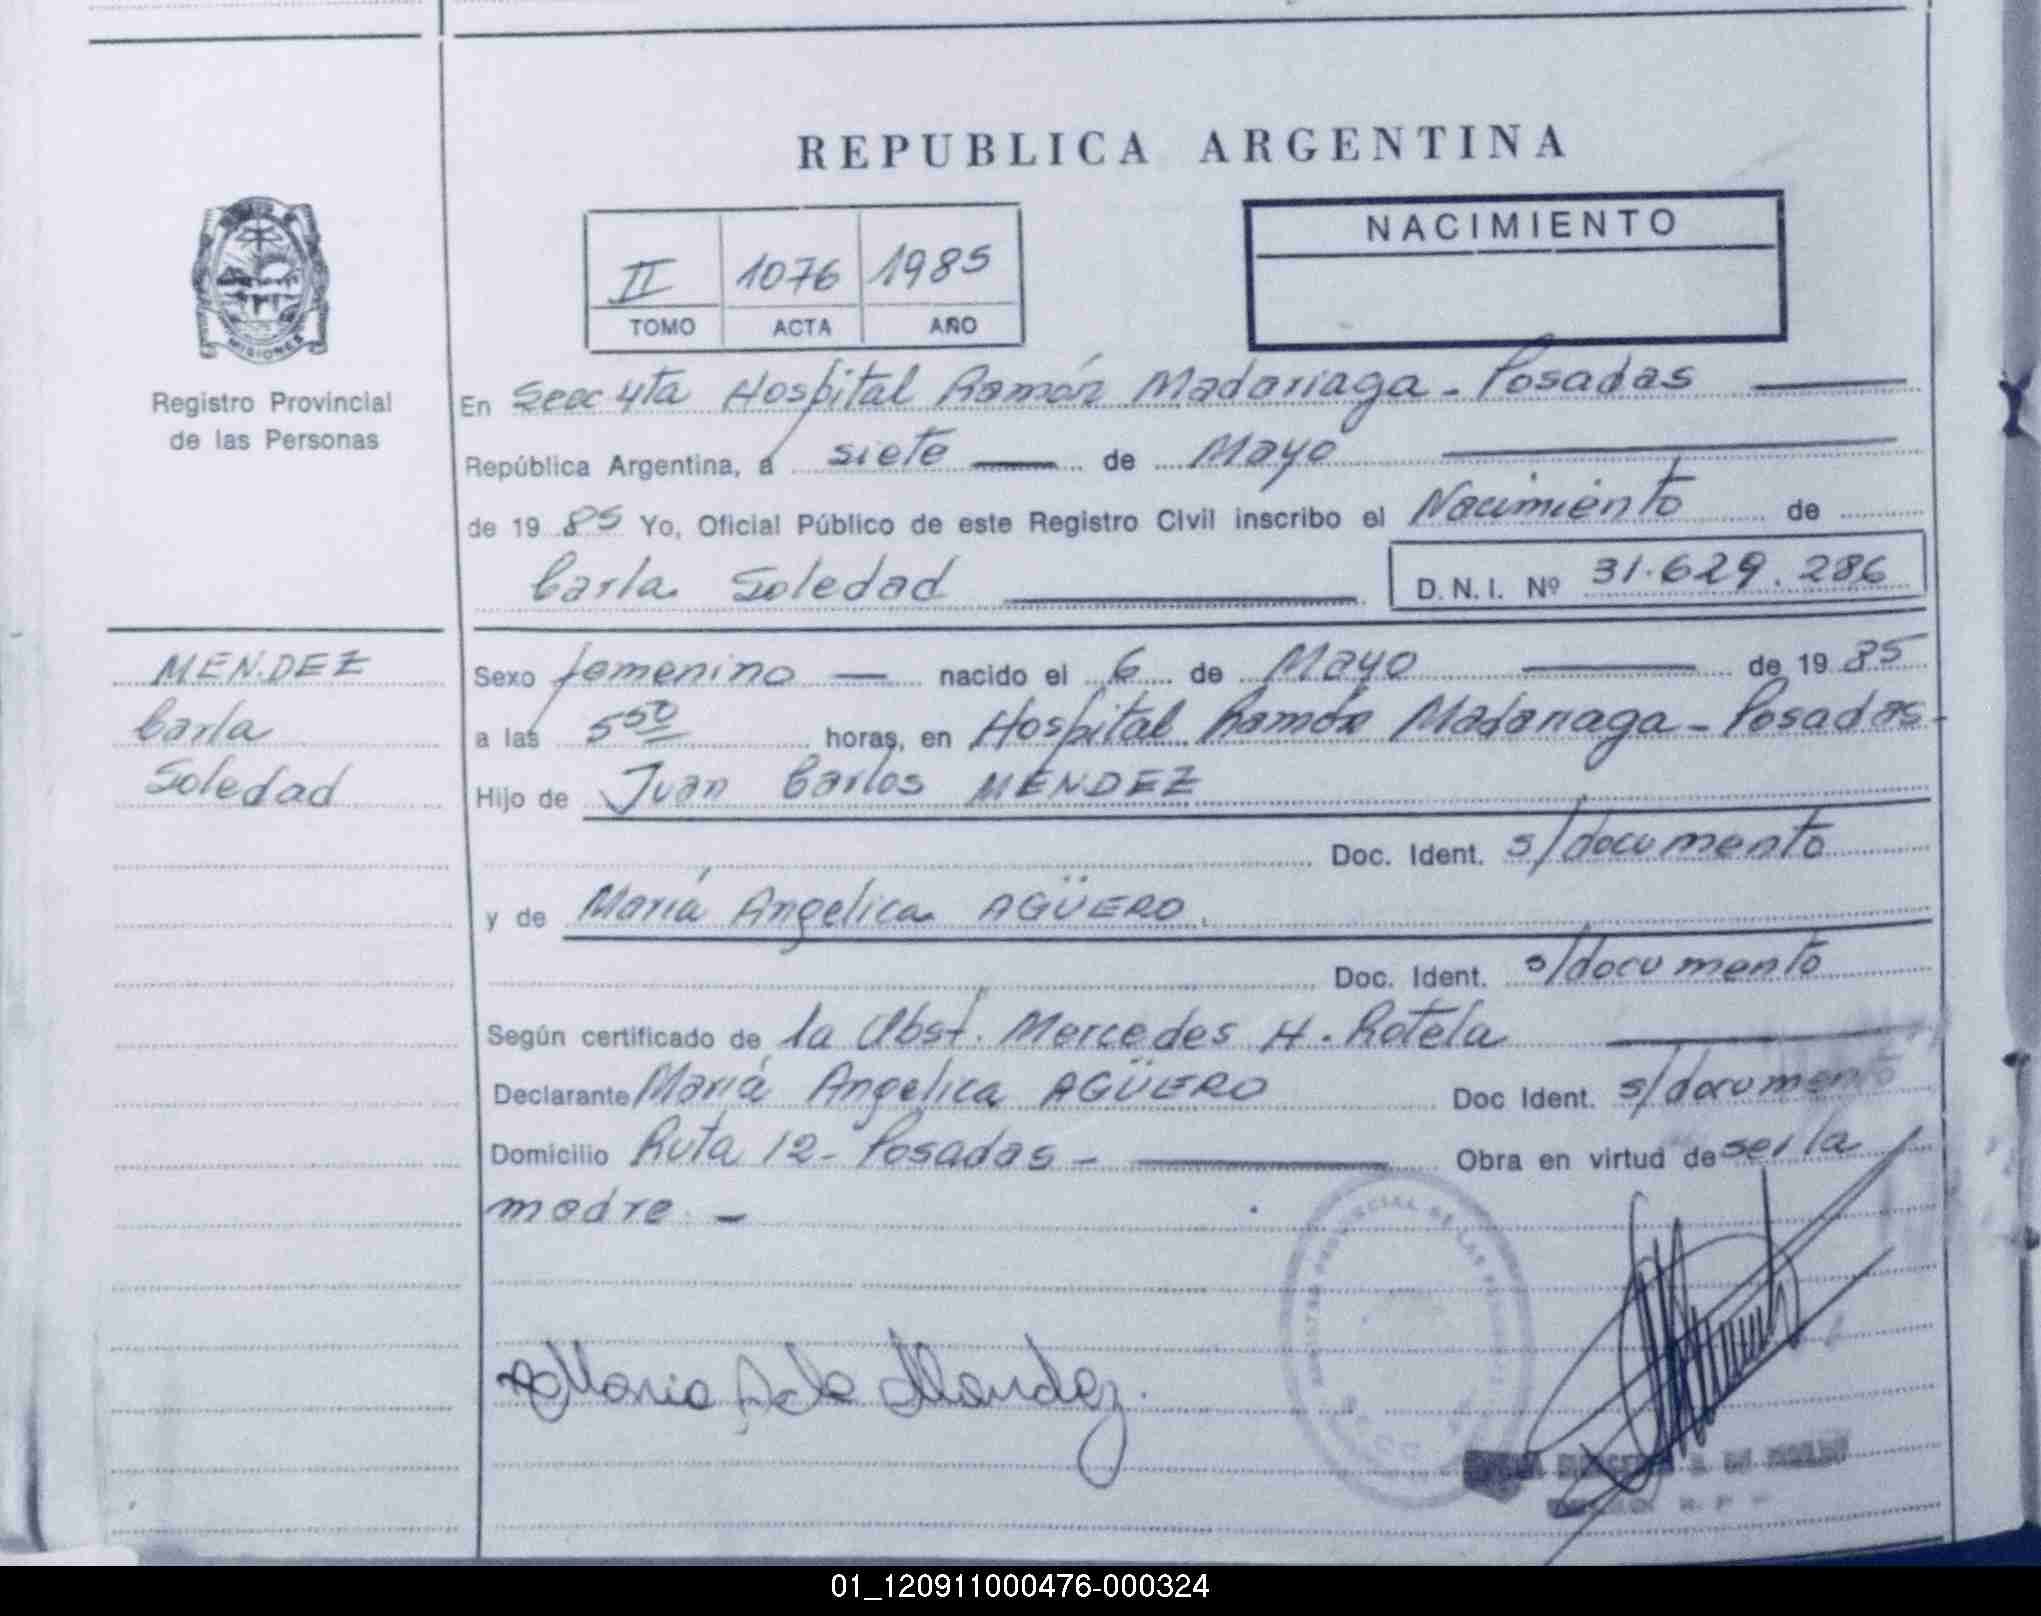 REPUBLICA ARGENTINA
NACIMIENTO
II 1076 1985
TOMO ACTA AÑO
MISIONES
Registro Provincial
de las Personas
En Secc 4ta Hospital Ramón Madariaga - Posadas
República Argentina, a siete de Mayo
de 19 85 Yo, Oficial Público de este Registro Civil inscribo el Nacimiento de
Carla Soledad D.N.I. Nº 31.629.286
MENDEZ
Carla
Soledad
Sexo femenino nacido el 6 de Mayo de 19 85
a las 5 50 horas, en Hospital Ramón Madariaga - Posadas -
Hijo de Juan Carlos MENDEZ
Doc. Ident. s/documento
y de María Angelica AGÜERO.
Doc. Ident. s/documento
Según certificado de la Obst. Mercedes H. Rotela
Declarante María Angelica AGÜERO Doc Ident. s/documento
Domicilio Ruta 12 - Posadas - Obra en virtud de ser la
madre. -
PROVINCIAL DE LAS
María A de Mendez.
01_120911000476-000324